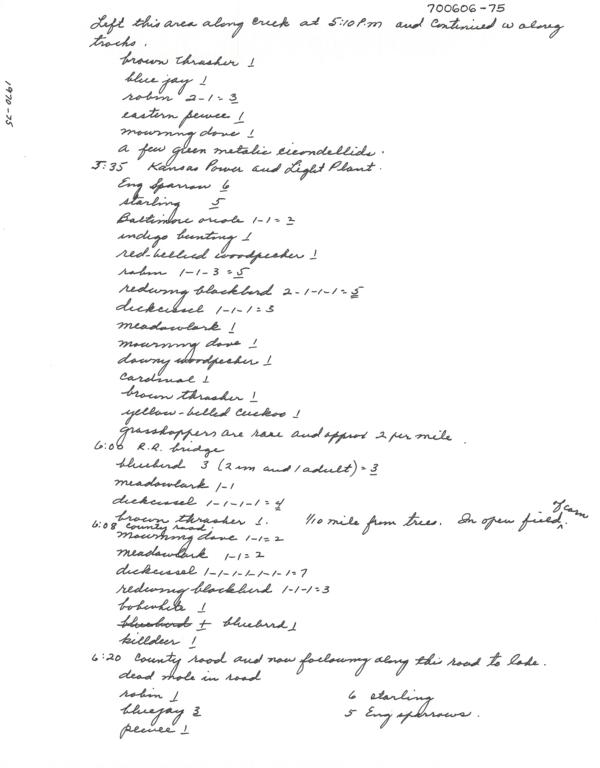 700606-75
1970-75
Left this area along creek at 5:10 P.m and Continued w along
tracks.
brown thrasher 1
blue jay 1
robin 2-1=3
eastern pewee 1
mourning dove 1
a few green metalic cicondellids.
5:35 Kansas Power and Light Plant.
Eng Sparrow 6
starling 5
Baltimore oriole 1-1=2
indigo bunting 1
red-bellied woodpecker 1
robin 1-1-3=5
redwing blackbird 2-1-1-1=5
dickcissel 1-1-1=3
meadowlark 1
mourning dove 1
downy woodpecker 1
Cardinal 1
brown thrasher 1
yellow-belled Cuckoo 1
grasshoppers are rare and approx 2 per mile.
6:00 R.R. bridge
bluebird 3 (2 im and 1 adult)=3
meadowlark 1-1
dickcissel 1-1-1-1=4
brown thrasher 1. 1/10 mile from trees. In open field of corn.
6:08 County road.
mourning dove 1-1=2
meadowlark 1-1=2
dickcissel 1-1-1-1-1-1-1=7
redwing blackbird 1-1-1=3
bobwhite 1
bluebird 1 bluebird 1
killdeer 1
6:20 County road and now following along this road to lake.
dead mole in road
robin 1 6 starling
bluejay 3 5 Eng sparrows.
pewee 1